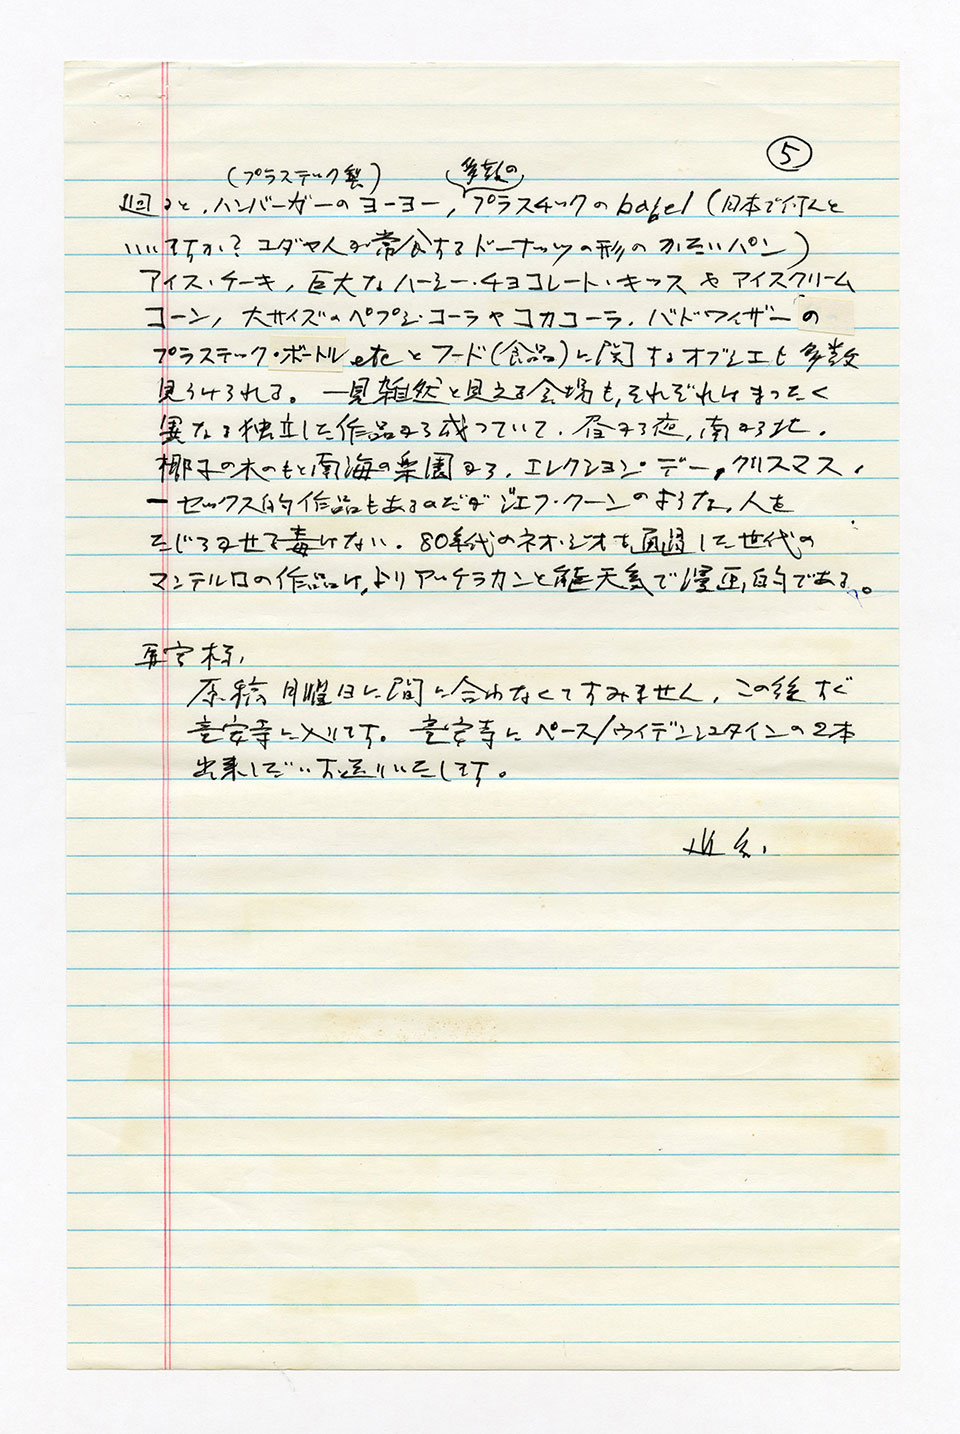 ⑤
(プラスティック製) 多数の
廻ると、ハンバーガーのヨーヨー, プラスチックの bagel (日本で何んと
いいますか? ユダヤ人が常食するドーナッツの形のかたいパン)
アイス・ケーキ, 巨大なハーシー・チョコレート・キッスやアイスクリーム
コーン, 大サイズのペプシ・コーラやコカコーラ, バドワイザーの
プラスティック・ボトル etc とフード(食品)に関するオブジェも多数
見うけられる。一見雑然と見える会場も, それぞれはまったく
異なる独立した作品から成っていて, 昼から夜, 南から北,
椰子の木のもと南海の楽園から, エレクション・デー, クリスマス,
ーセックス的作品もあるのだがジェフ・クーンのような, 人を
たじろがせる毒はない. 80年代のネオ・ジオを通過した世代の
マンテルロの作品は, よりアッケラカンと能天気で漫画的である。
様,
原稿月曜日に間に合わなくてすみません, この後すぐ
安寺に入ります。 安寺にペース/ウィデンシュタインの2本
出来しだいお送りいたします。